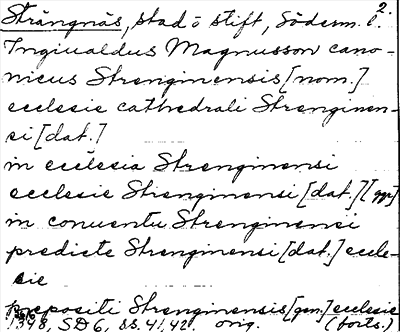 2.
Strängnäs, stad o stift, Söderm. l.
Ingiualdus Magnusson cano-
nicus Strenginensis [nom.]
ecclesie cathedrali Strenginen-
si [dat.]
in ecclesia Strenginensi
ecclesie Strenginensi [dat.]
in conuentu Strenginensi
predicte Strenginensi [dat.] eccle-
sie
prepositi Strenginensis [gen.] ecclesie
1348, SD 6, ss. 41, 42. orig. (forts.)